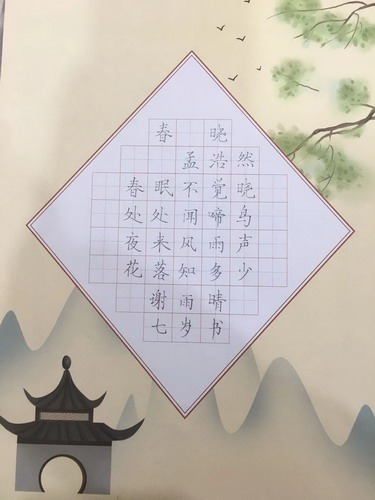 春晓
孟浩然
春眠不觉晓
处处闻啼鸟
夜来风雨声
花落知多少
谢雨晴
七岁书